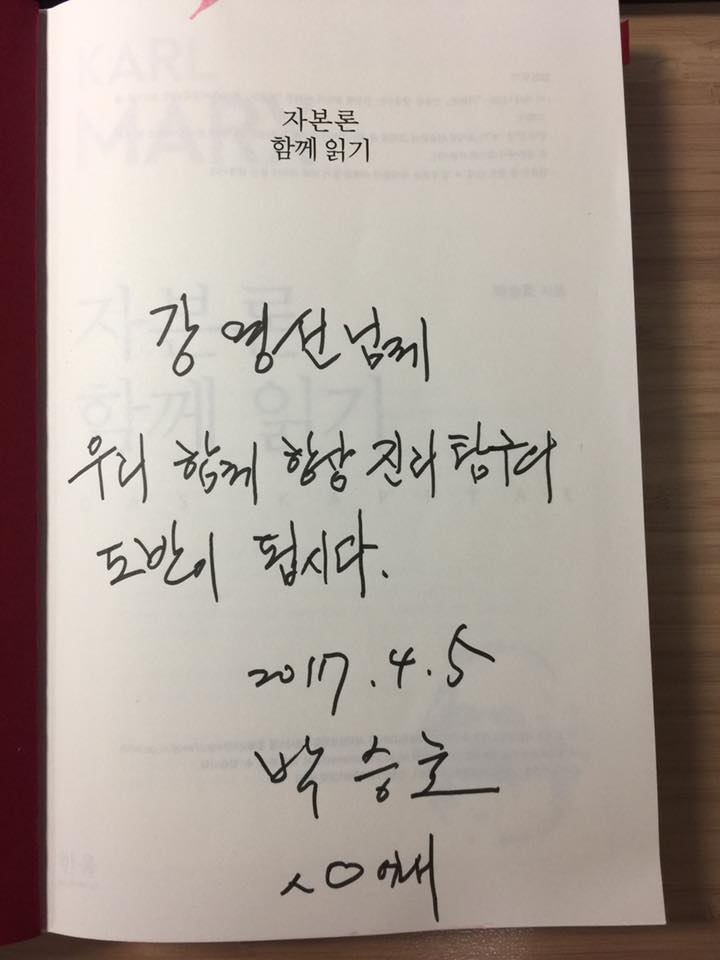 자본론
함께 읽기
강영선님께
우리 함께 항상 진리탐구의
도반이 됩시다.
2017.4.5
박승호
ㅅㅇ에서